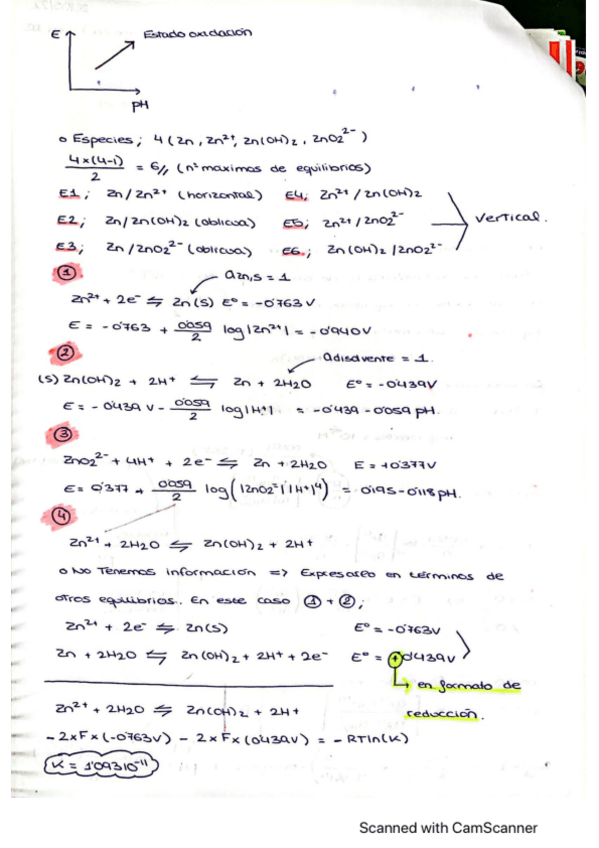 E Estado oxidación
pH
o Especies; 4 (Zn, Zn²⁺, Zn(OH)₂, ZnO₂²⁻)
4×(4-1)/2 = 6// (nº maximos de equilibrios)
E1; Zn/Zn²⁺ (horizontal) E4; Zn²⁺/Zn(OH)2
E2; Zn/Zn(OH)₂ (oblicua) E5; Zn²⁺/ZnO₂²⁻ Vertical.
E3; Zn/ZnO₂²⁻ (oblicua) E6.; Zn(OH)₂/ZnO₂²⁻
① aZn,s = 1
Zn²⁺ + 2e⁻ ⇆ Zn(s) Eº = -0'763V
E = -0'763 + 0'059/2 log|Zn²⁺| = -0'940V
② adisolvente = 1.
(S) Zn(OH)₂ + 2H⁺ ⇆ Zn + 2H₂O Eº = -0'439V
E = -0'439V - 0'059/2 log|H⁺| = -0'439 - 0'059 pH.
③
ZnO₂²⁻ + 4H⁺ + 2e⁻ ⇆ Zn + 2H₂O E = +0'377V
E = 0'377 + 0'059/2 log(|ZnO₂⁼||H⁺|⁴) = 0'195 - 0'118pH.
④
Zn²⁺ + 2H₂O ⇆ Zn(OH)₂ + 2H⁺
o No Tenemos información => Expresarlo en términos de
otros equilibrios. En este caso ① + ②;
Zn²⁺ + 2e⁻ ⇆ Zn(s) Eº = -0'763V
Zn + 2H₂O ⇆ Zn(OH)₂ + 2H⁺ + 2e⁻ Eº = +0'439V
en formato de
reducción.
Zn²⁺ + 2H₂O ⇆ Zn(OH)₂ + 2H⁺
-2×F×(-0'763V) - 2×F×(0'439V) = -RTln(K)
K = 1'093 10⁻¹¹
Scanned with CamScanner